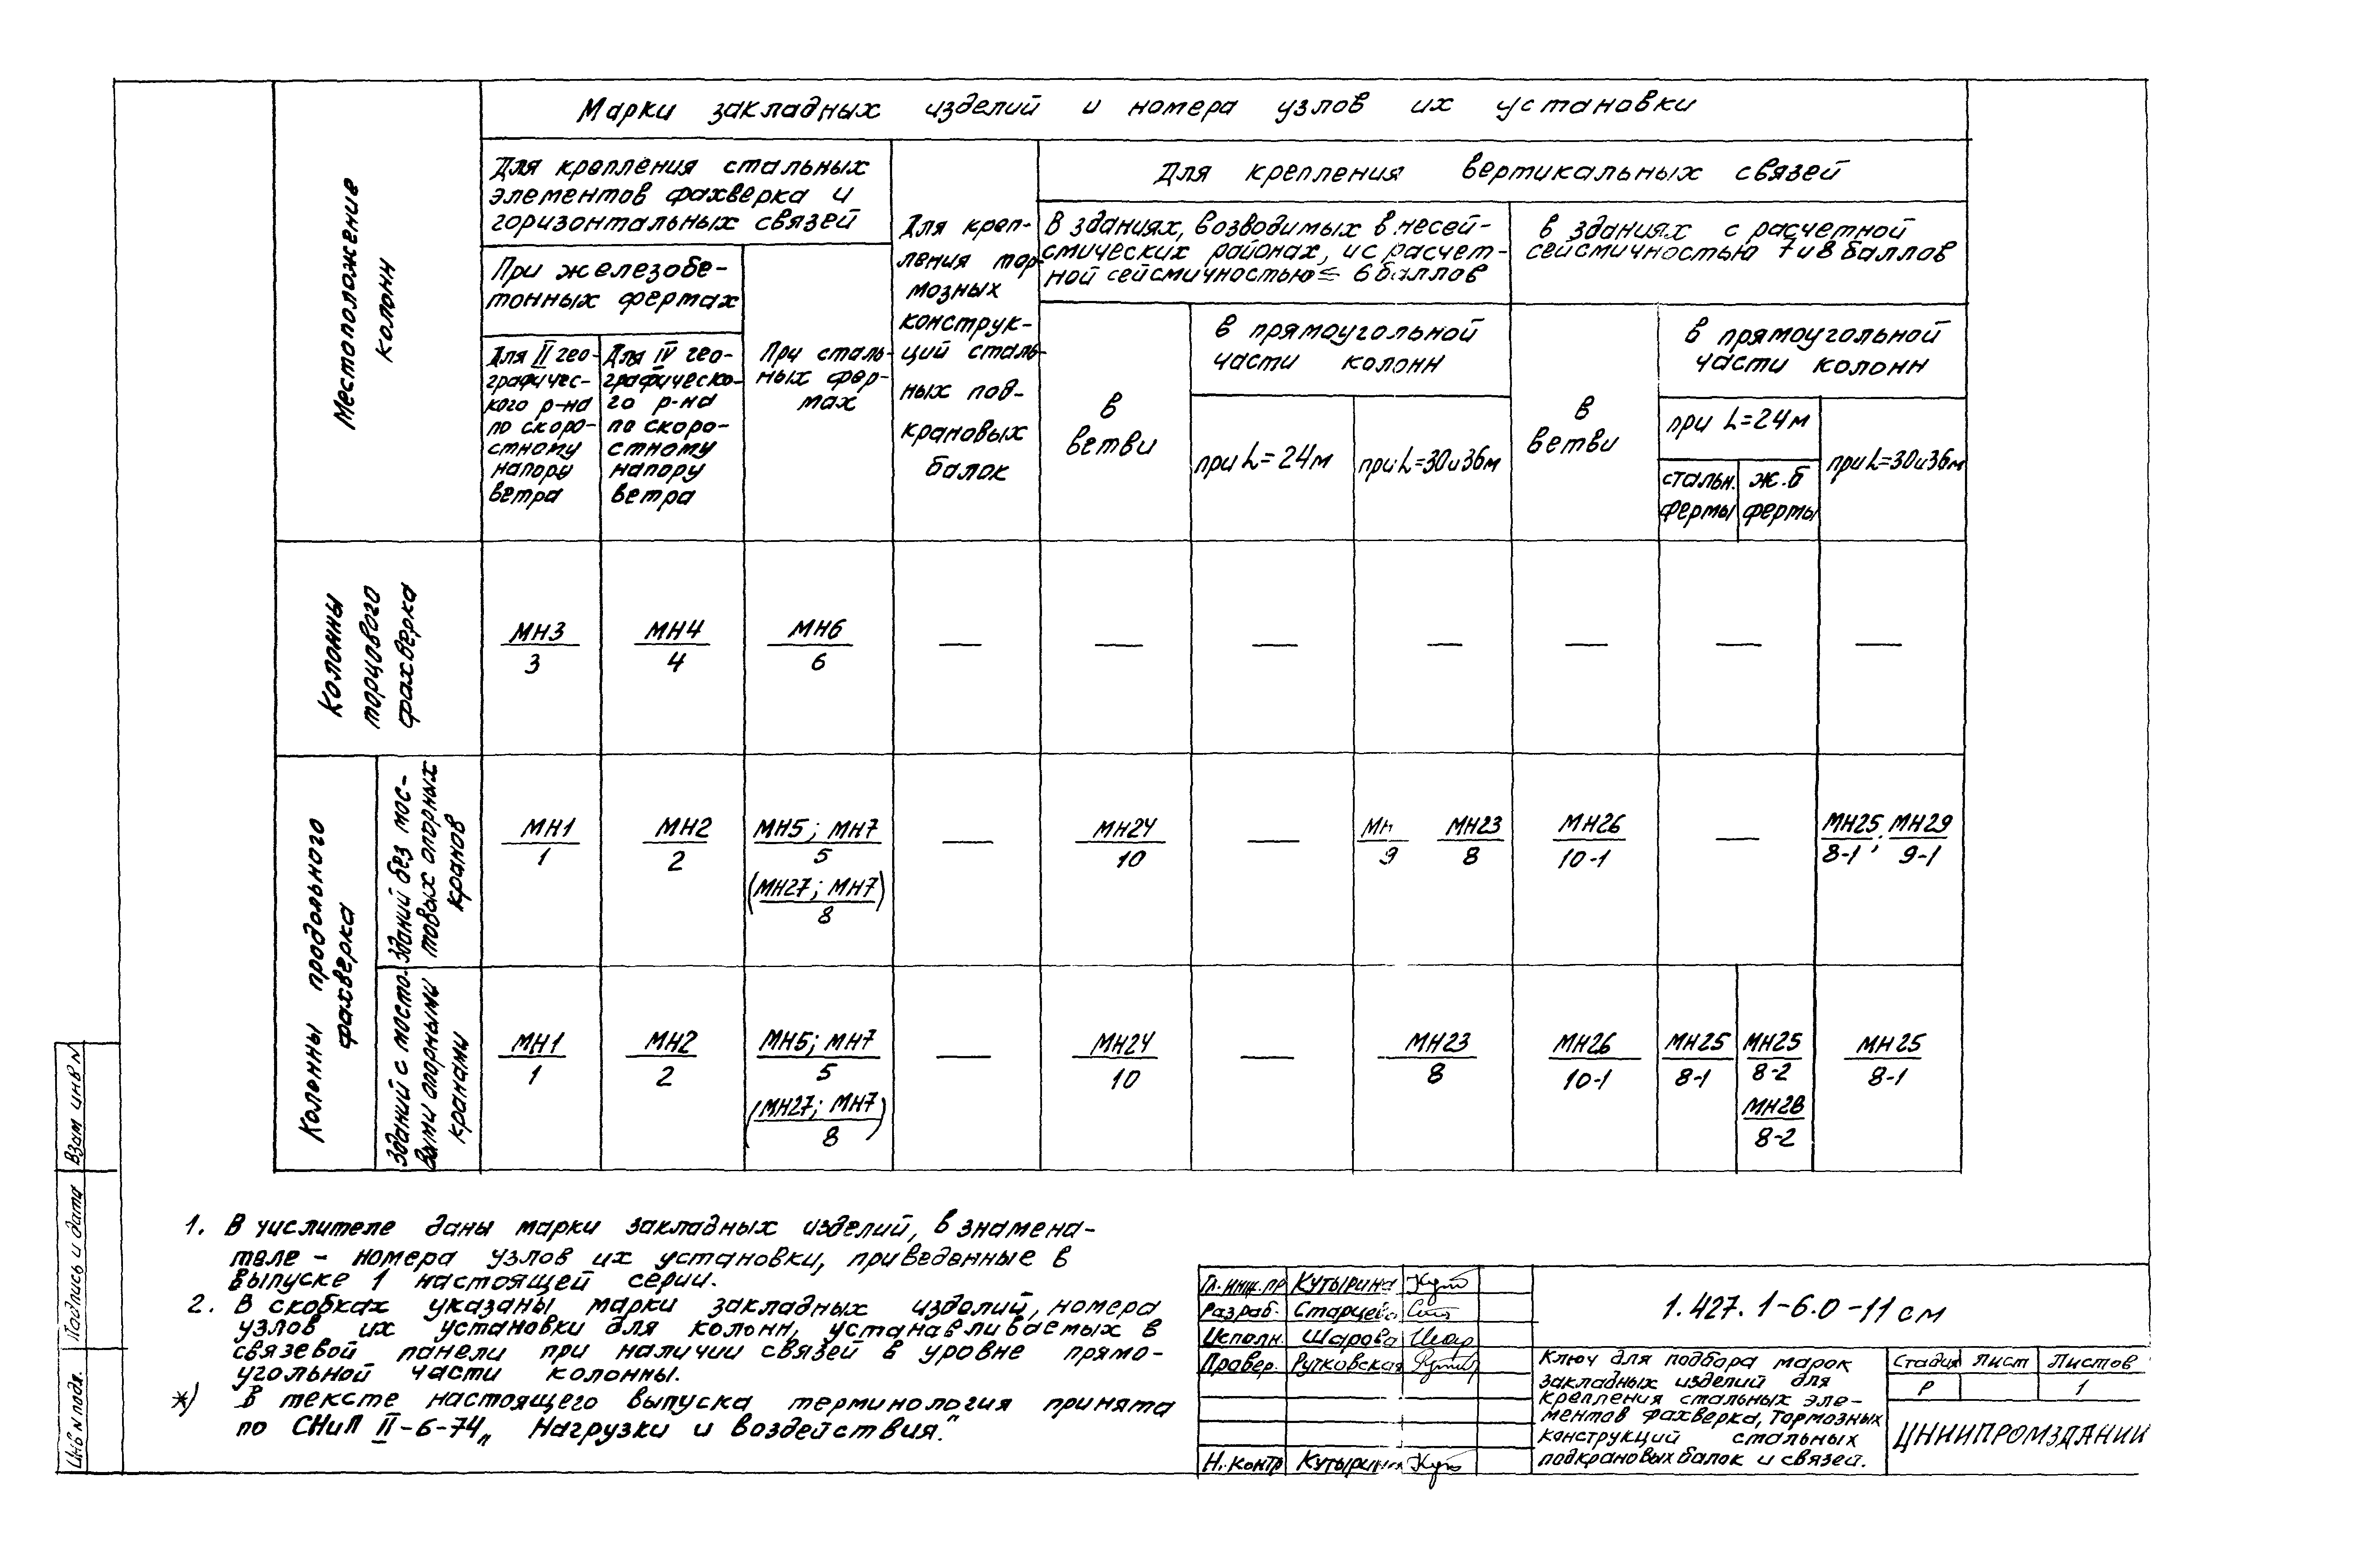 Марки закладных изделий и номера узлов их установки
Местоположение
колонн
Для крепления стальных
элементов фахверка и
горизонтальных связей
Для креп-
ления тор-
мозных
конструк-
ций сталь-
ных под-
крановых
балок
Для крепления вертикальных связей
В зданиях, возводимых в несей-
смических районах, и с расчет-
ной сейсмичностью ≤ 6 баллов
в зданиях с расчетной
сейсмичностью 7 и 8 баллов
При железобе-
тонных фермах
При сталь-
ных фер-
мах
Для II гео-
графичес-
кого р-на
по скоро-
стному
напору
ветра
Для IV гео-
графическо-
го р-на
по скоро-
стному
напору
ветра
в
ветви
в прямоугольной
части колонн
при L=24м
при L=30и36м
в
ветви
в прямоугольной
части колонн
при L=24м
стальн.
фермы
ж.б
фермы
при L=30и36м
Колонны
торцового
фахверка
МН3
3
МН4
4
МН6
6
— — — — — — —
Колонны продольного
фахверка
Зданий без мос-
товых опорных
кранов
МН1
1
МН2
2
МН5; МН7
5
(МН27; МН7)
8
—
МН24
10
—
МН
9
МН23
8
МН26
10-1
—
МН25; МН29
8-1 9-1
Зданий с мосто-
выми опорными
кранами
МН1
1
МН2
2
МН5; МН7
5
(МН27; МН7)
8
—
МН24
10
—
МН23
8
МН26
10-1
МН25
8-1
МН25
8-2
МН28
8-2
МН25
8-1
1. В числителе даны марки закладных изделий, в знамена-
теле – номера узлов их установки, приведенные в
выпуске 1 настоящей серии.
2. В скобках указаны марки закладных изделий, номера
узлов их установки для колонн, устанавливаемых в
связевой панели при наличии связей в уровне прямо-
угольной части колонны.
*) В тексте настоящего выпуска терминология принята
по СНиП II-6-74 „Нагрузки и воздействия."
Взам инв N
Подпись и дата
Инв N подл.
Гл. инж. пр Кутырина
Разраб. Старцева
Исполн. Шарова
Провер. Ручковская
Н. контр Кутырина
1.427.1-6.0-11 см
Ключ для подбора марок
закладных изделий для
крепления стальных эле-
ментов фахверка, тормозных
конструкций стальных
подкрановых балок и связей.
Стадия Лист Листов
Р 1
ЦНИИПРОМЗДАНИЙ